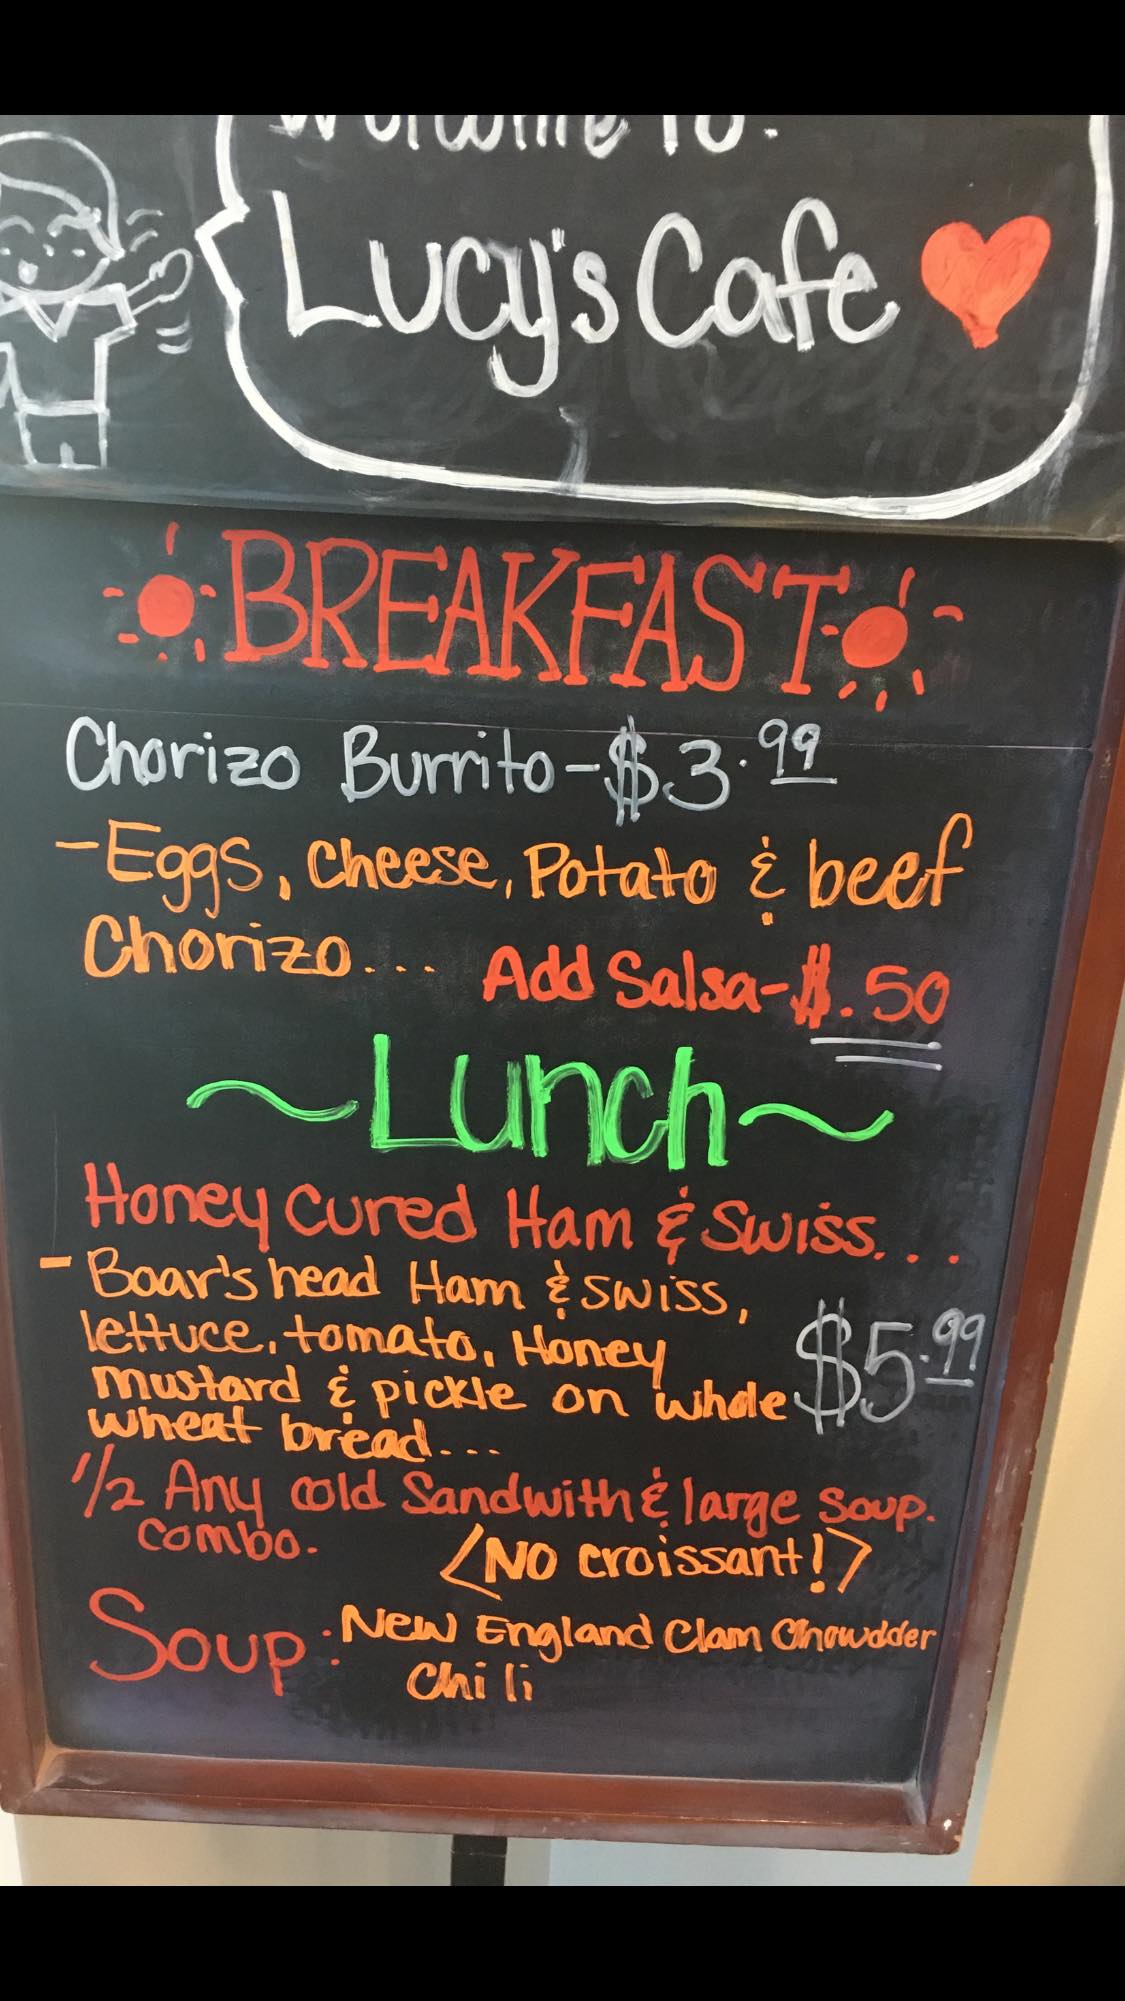 Welcome To:
Lucy's Cafe
BREAKFAST
Chorizo Burrito - $3.99
- Eggs, Cheese, Potato & beef
Chorizo... Add Salsa - $.50
~Lunch~
Honey Cured Ham & Swiss...
- Boar's head Ham & Swiss,
lettuce, tomato, Honey
mustard & pickle on whole $5.99
wheat bread...
1/2 Any cold Sandwith & large soup.
combo. <No croissant!>
Soup: New England Clam Chowdder
Chili